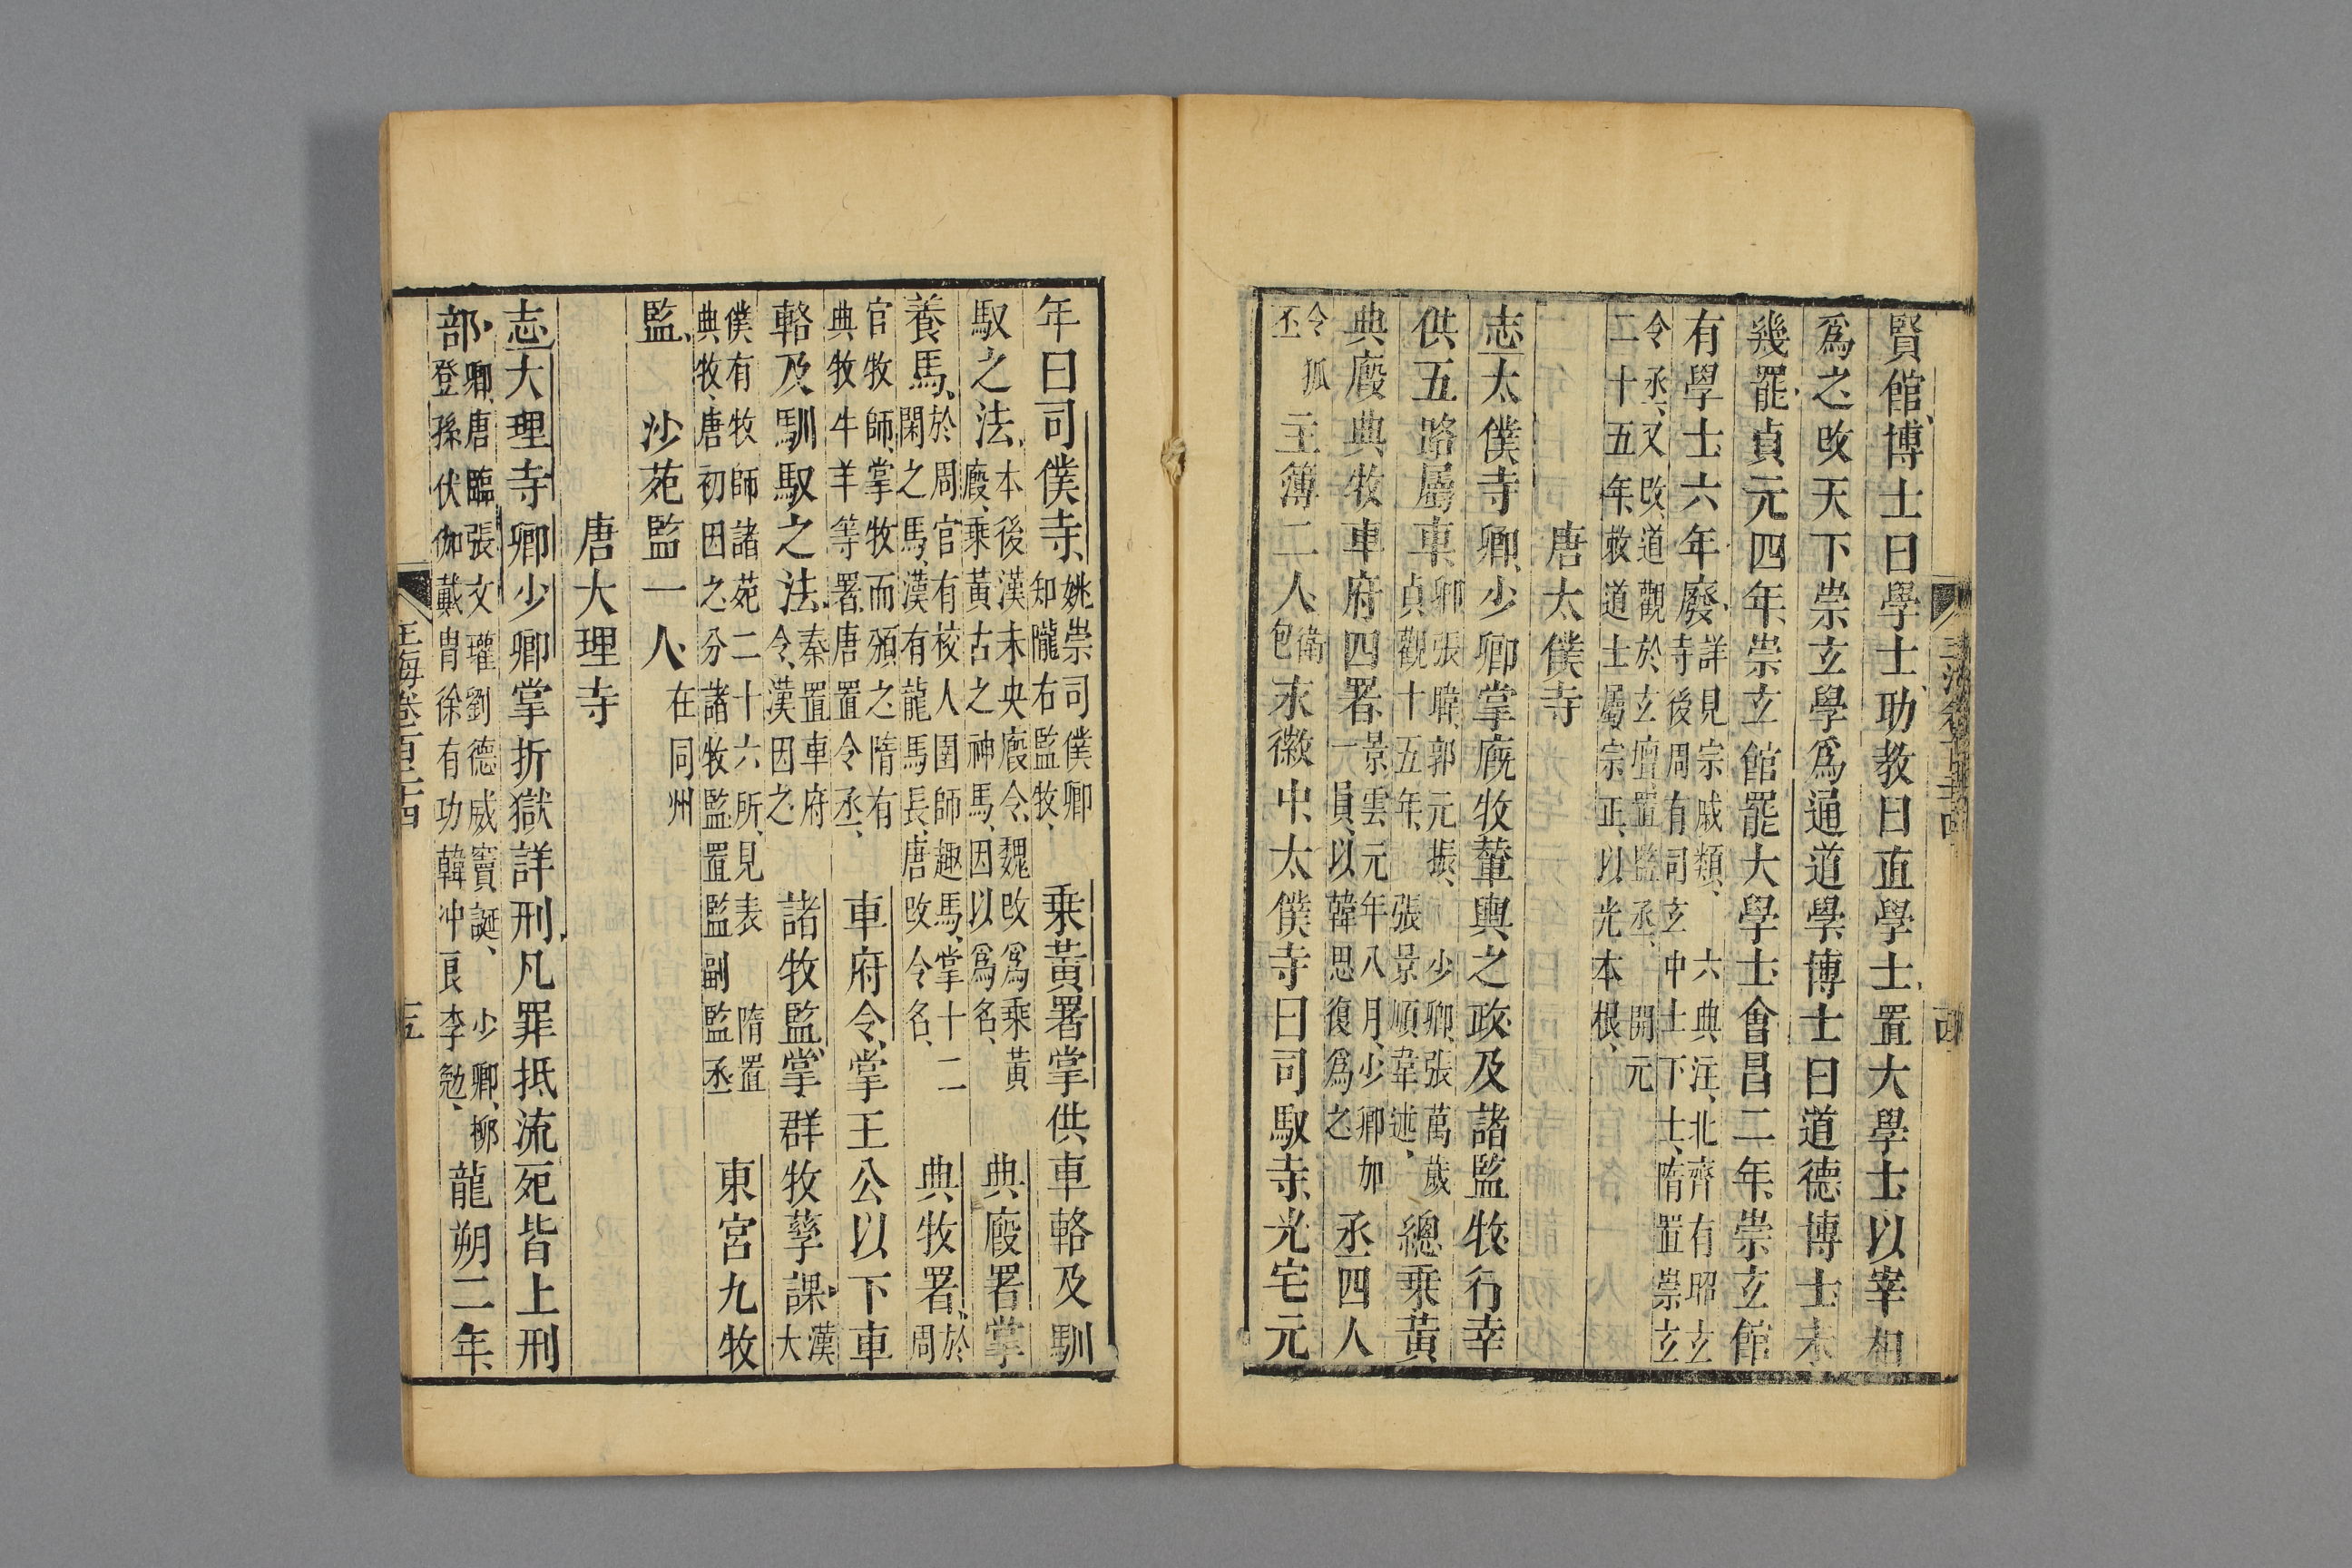 賢館博士曰學士助教曰直學士置大學士以宰相
爲之改天下崇玄學爲通道學博士曰道德博士未
幾罷貞元四年崇玄館罷大學士會昌二年崇玄館
有學士六年廢詳見宗戚類六典注北齊有昭玄
寺後周有司玄中士下士隋置崇玄
令丞又改道觀於玄壇置監丞開元
二十五年敕道士屬宗正以光本根
唐太僕寺
志太僕寺卿少卿掌廐牧輦輿之政及諸監牧行幸
供五路屬車卿張暐郭元振少卿張萬歲
貞觀十五年張景順韋述總乗黄
典廄典牧車府四署景雲元年八月少卿加
一員以韓思復爲之丞四人
令狐
丕主簿二人衛
包永徽中太僕寺曰司馭寺光宅元
年曰司僕寺姚崇司僕卿
知隴右監牧乗黄署掌供車輅及馴
馭之法本後漢未央廄令魏改爲乗黄
廄乗黄古之神馬因以爲名典廄署掌
養馬於周官有校人圉師趣馬掌十二
閑之馬漢有龍馬長唐改令名典牧署於
周
官牧師掌牧而頒之隋有
典牧牛羊等署唐置令丞車府令掌王公以下車
輅及馴馭之法秦置車府
令漢因之諸牧監掌群牧孳課漢
大
僕有牧師諸苑二十六所見表隋置
典牧唐初因之分諸牧監置監副監丞東宮九牧
監沙苑監一人在同州
唐大理寺
志大理寺卿少卿掌折獄詳刑凡罪抵流死皆上刑
部卿唐臨張文瓘劉德威竇誕少卿柳
登孫伏伽戴胄徐有功韓冲良李勉龍朔二年
玉海卷一百二十四